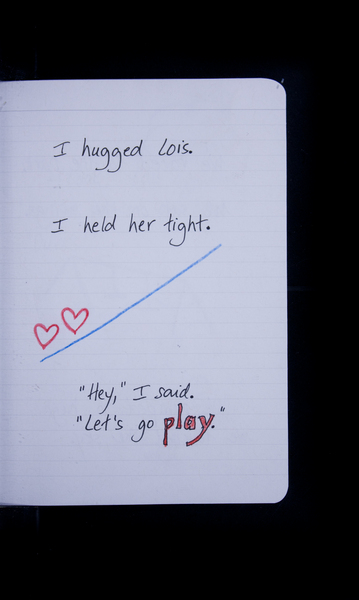 I hugged Lois.
I held her tight.
"Hey," I said.
"Let's go play."